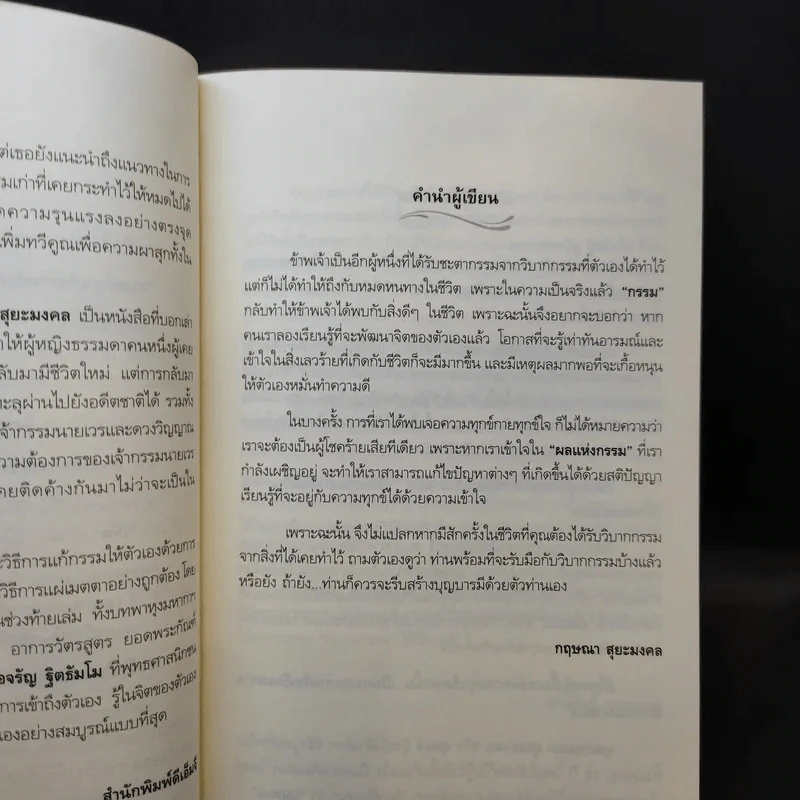 ต่เธอยังแนะนำถึงแนวทางในการ
รมเก่าที่เคยกระทำไว้ให้หมดไปได้
ดความรุนแรงลงอย่างตรงจุด
เพิ่มทวีคูณเพื่อความผาสุกทั้งใน
สุยะมงคล เป็นหนังสือที่บอกเล่า
ำให้ผู้หญิงธรรมดาคนหนึ่งผู้เคย
ลับมามีชีวิตใหม่ แต่การกลับมา
ะลุผ่านไปยังอดีตชาติได้ รวมทั้ง
จ้ากรรมนายเวรและดวงวิญญาณ
วามต้องการของเจ้ากรรมนายเวร
คยติดค้างกันมาไม่ว่าจะเป็นใน
ะวิธีการแก้กรรมให้ตัวเองด้วยการ
วิธีการแผ่เมตตาอย่างถูกต้อง โดย
นช่วงท้ายเล่ม ทั้งบทพาหุงมหากาฯ
อาการวัตรสูตร ยอดพระกัณฑ์
อจรัญ ฐิตธัมโม ที่พุทธศาสนิกชน
การเข้าถึงตัวเอง รู้ในจิตของตัวเอง
องอย่างสมบูรณ์แบบที่สุด
สำนักพิมพ์ดีเอ็มจี
คำนำผู้เขียน
ข้าพเจ้าเป็นอีกผู้หนึ่งที่ได้รับชะตากรรมจากวิบากกรรมที่ตัวเองได้ทำไว้
แต่ก็ไม่ได้ทำให้ถึงกับหมดหนทางในชีวิต เพราะในความเป็นจริงแล้ว “กรรม”
กลับทำให้ข้าพเจ้าได้พบกับสิ่งดีๆ ในชีวิต เพราะฉะนั้นจึงอยากจะบอกว่า หาก
คนเราลองเรียนรู้ที่จะพัฒนาจิตของตัวเองแล้ว โอกาสที่จะรู้เท่าทันอารมณ์และ
เข้าใจในสิ่งเลวร้ายที่เกิดกับชีวิตก็จะมีมากขึ้น และมีเหตุผลมากพอที่จะเกื้อหนุน
ให้ตัวเองหมั่นทำความดี
ในบางครั้ง การที่เราได้พบเจอความทุกข์กายทุกข์ใจ ก็ไม่ได้หมายความว่า
เราจะต้องเป็นผู้โชคร้ายเสียทีเดียว เพราะหากเราเข้าใจใน “ผลแห่งกรรม” ที่เรา
กำลังเผชิญอยู่ จะทำให้เราสามารถแก้ไขปัญหาต่างๆ ที่เกิดขึ้นได้ด้วยสติปัญญา
เรียนรู้ที่จะอยู่กับความทุกข์ได้ด้วยความเข้าใจ
เพราะฉะนั้น จึงไม่แปลกหากมีสักครั้งในชีวิตที่คุณต้องได้รับวิบากกรรม
จากสิ่งที่ได้เคยทำไว้ ถามตัวเองดูว่า ท่านพร้อมที่จะรับมือกับวิบากกรรมบ้างแล้ว
หรือยัง ถ้ายัง...ท่านก็ควรจะรีบสร้างบุญบารมีด้วยตัวท่านเอง
กฤษณา สุยะมงคล